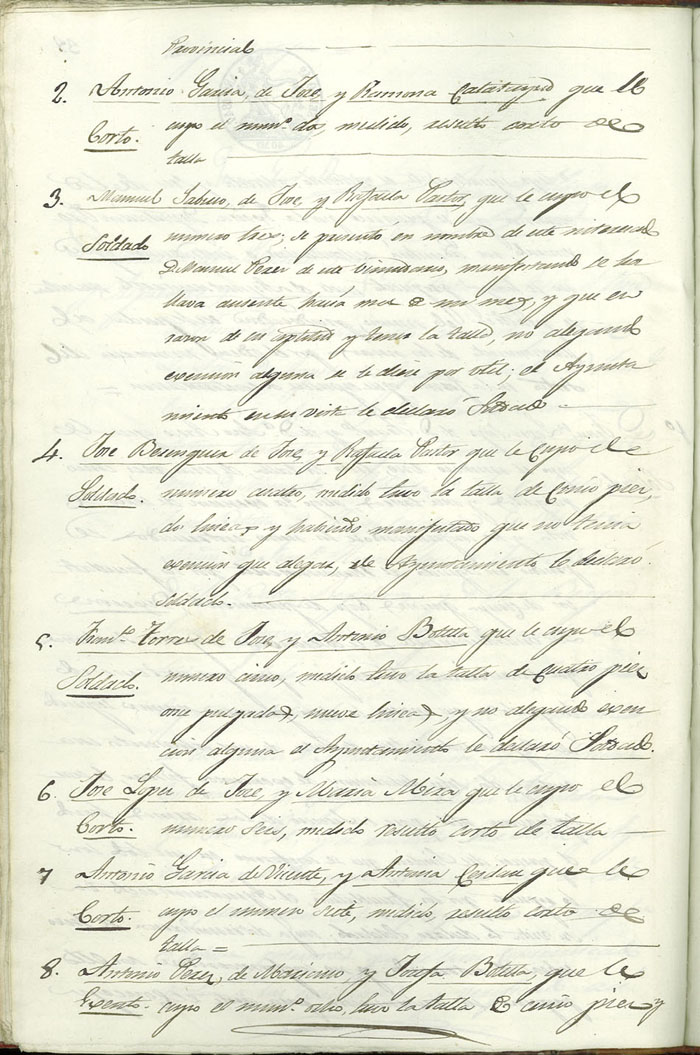 Provincial
2. Antonio Garcia, de Jose, y Ramona Calatayud que le
Corto. cupo el num.º dos, medido, resultó corto de
talla
3. Manuel Sabuco, de Jose, y Rafaela Pastor, que le cupo el
Soldado numero tres; se presentó en nombre de este interesado
D. Manuel Perez de este Vecindario, manifestando se ha
llava ausente hacia mas de un mes, y que en
razon de su aptitud y tener la talla, no alegando
exencion alguna se le diese por util; el Ayunta
miento en su vista le declaró Soldado
4. Jose Berenguer de Jose, y Rafaela Pastor que le cupo el
Soldado. numero cuatro, medido tuvo la talla de cinco pies,
dos lineas y habiendo manifestado que no tenia
exencion que alegar, el Ayuntamiento lo declaró
soldado.
5. Torres de Jose, y Antonia Botella que le cupo el
Soldado. numero cinco, medido tuvo la talla de cuatro pies
once pulgadas, nueve lineas y no alegando exen
cion alguna el Ayuntamiento le declaró Soldado.
6. Jose Lopez de Jose, y Maria Mira que le cupo el
Corto. numero seis, medido resultó corto de talla
7 Antonio Garcia de Vicente, y Antonia que le
Corto. cupo el numero siete, medido, resultó corto de
talla =
8. Antonio Perez, de Maximo, y Josefa Botella, que le
Exento. cupo el num.º ocho, tuvo la talla de cinco pies y